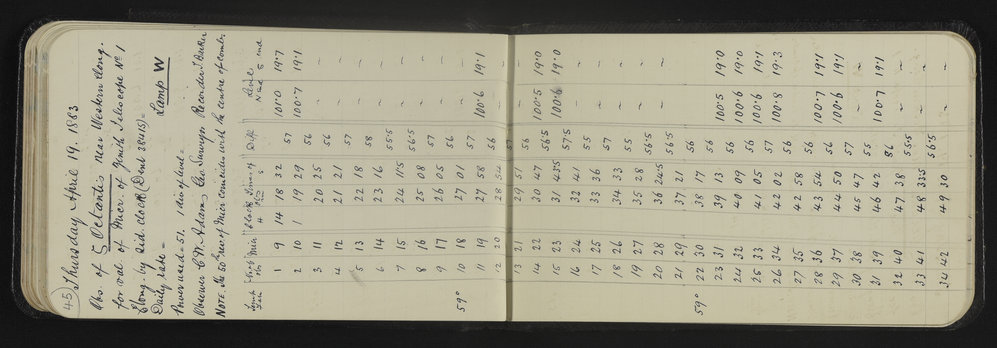 45
Thursday April 19. 1883
Obs. of ζ Octantis near Western Elong.
for val. of Micr of Zenith Telescope No 1
Elong. by sid. clock (Dent 28415) =
Daily rate = Lamp W
Power used 51. 1 div of level =
Observer C.W. Adams Geo Surveyor Recorder J. Barker
NOTE. the 50th rev of Micr coincides with the centre of comb.
Micr Clock times Diff Level
H M S N end S end
1 9 14 18 32 57 101.0 19.7
2 10 1 19 29 56 100.7 19.1
3 11 20 25 56 - -
4 12 21 21 57 - -
5 13 22 18 58 - -
6 14 23 16 55.5 - -
7 15 24 11.5 56.5 - -
8 16 25 08 57 - -
9 17 26 05 56 - -
59° 10 18 27 01 57 - -
11 19 27 58 56 100.6 19.1
12 20 28 54 57 - -
13 21 29 51 56 - -
14 22 30 47 56.5 100.5 19.0
15 23 31 43.5 57.5 100.6 19.0
16 24 32 41 55 - -
17 25 33 36 57 - -
18 26 34 33 55 - -
19 27 35 28 56.5 - -
20 28 36 24.5 56.5 - -
21 29 37 21 56 - -
59° 22 30 38 17 56 - -
23 31 39 13 56 100.5 19.0
24 32 40 09 56 100.6 19.0
25 33 41 05 57 100.6 19.1
26 34 42 02 56 100.8 19.3
27 35 42 58 56 - -
28 36 43 54 56 100.7 19.1
29 37 44 50 57 100.6 19.1
30 38 45 47 55 - -
31 39 46 42 56 100.7 19.1
32 40 47 38 55.5 - -
33 41 48 33.5 56.5 - -
34 42 49 30 - -